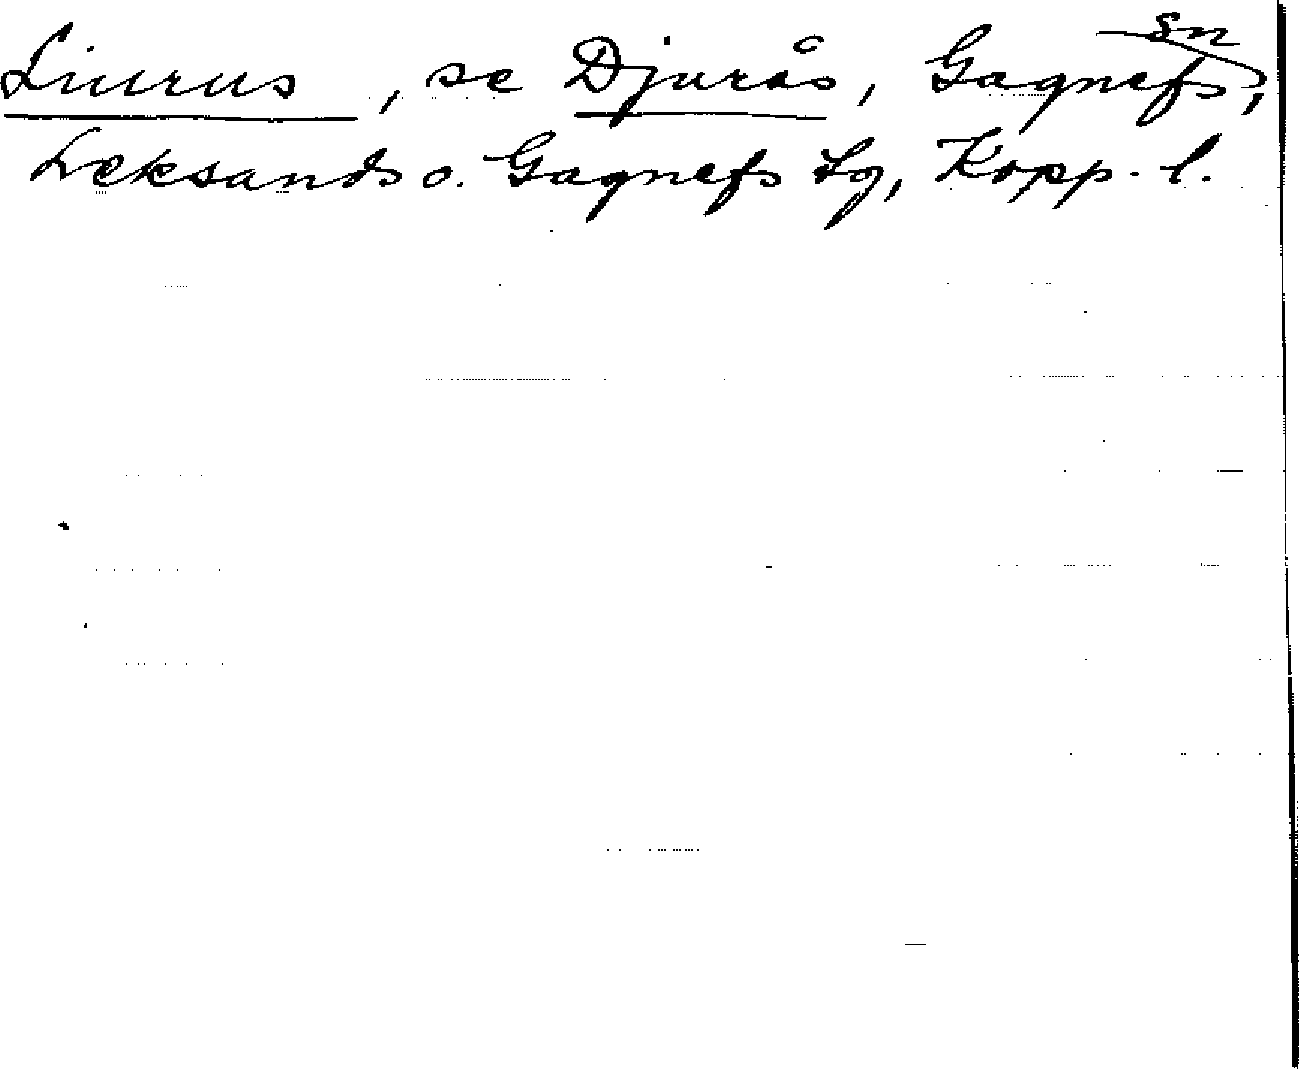 Liurus, se Djurås, Gagnefs sn,
Leksands o. Gagnefs tg, Kopp. l.